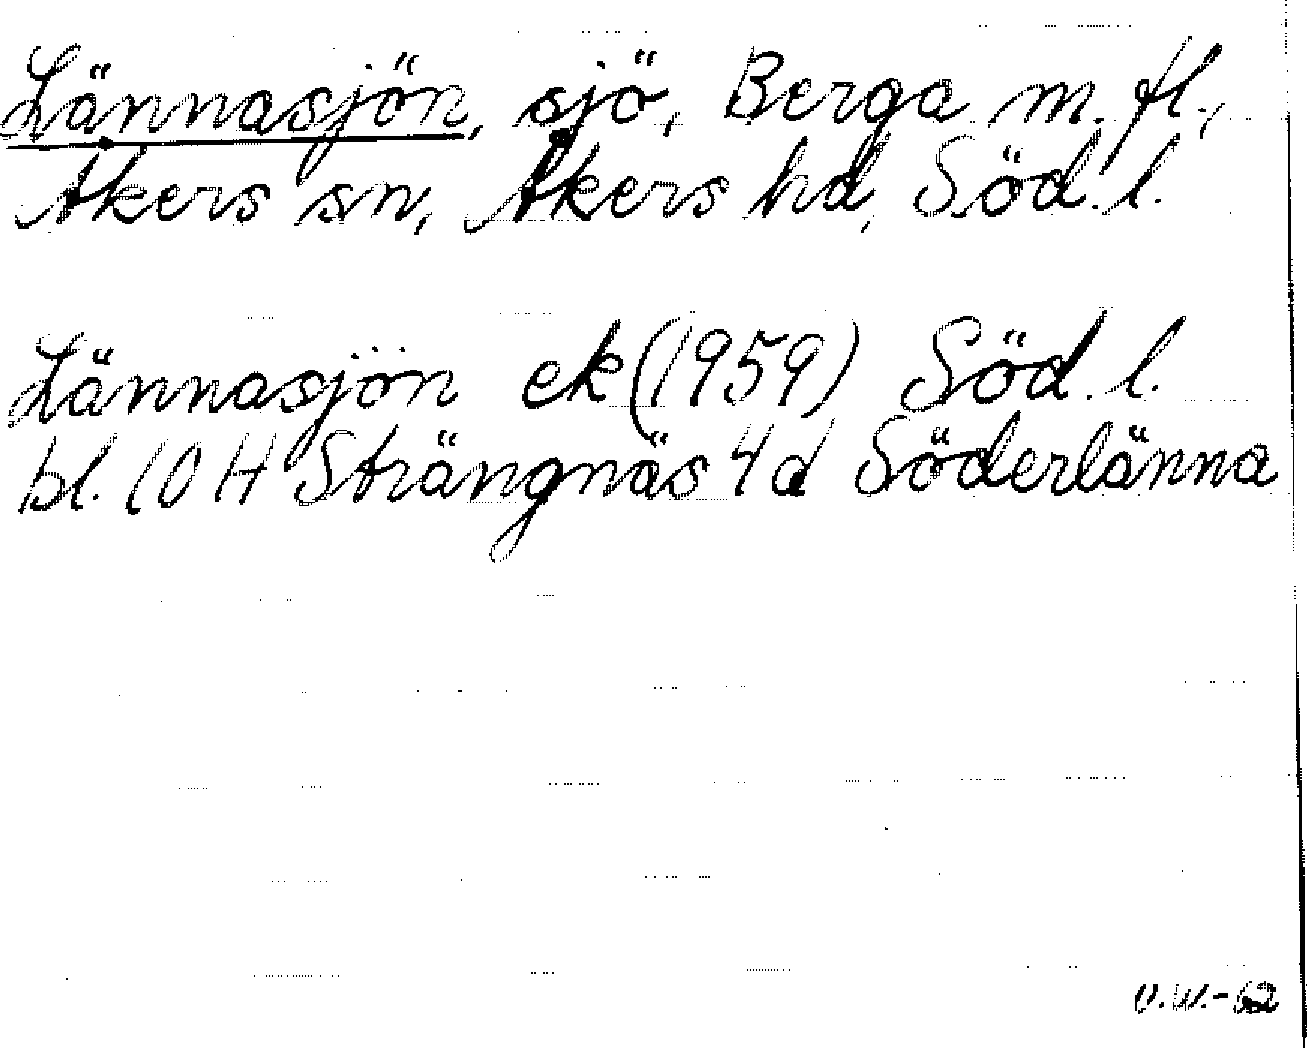 Lännasjön, sjö, Berga m. fl.,
Åkers sn, Åkers hd, Söd. l.
Lännasjön ek (1959) Söd. l.
bl. 10 H Strängnäs 4 d Söderlänna
U.W.-62